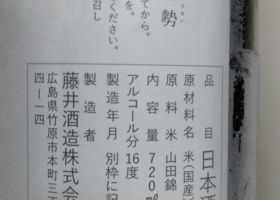 勢
てから。
を。
ください。
召し
品目 日本酒
原材料名 米(国産)
原料米 山田錦
内容量 720㎖
アルコール分 16度
製造年月 別枠に記
製造者
藤井酒造株式会
広島県竹原市本町三丁
四-一四